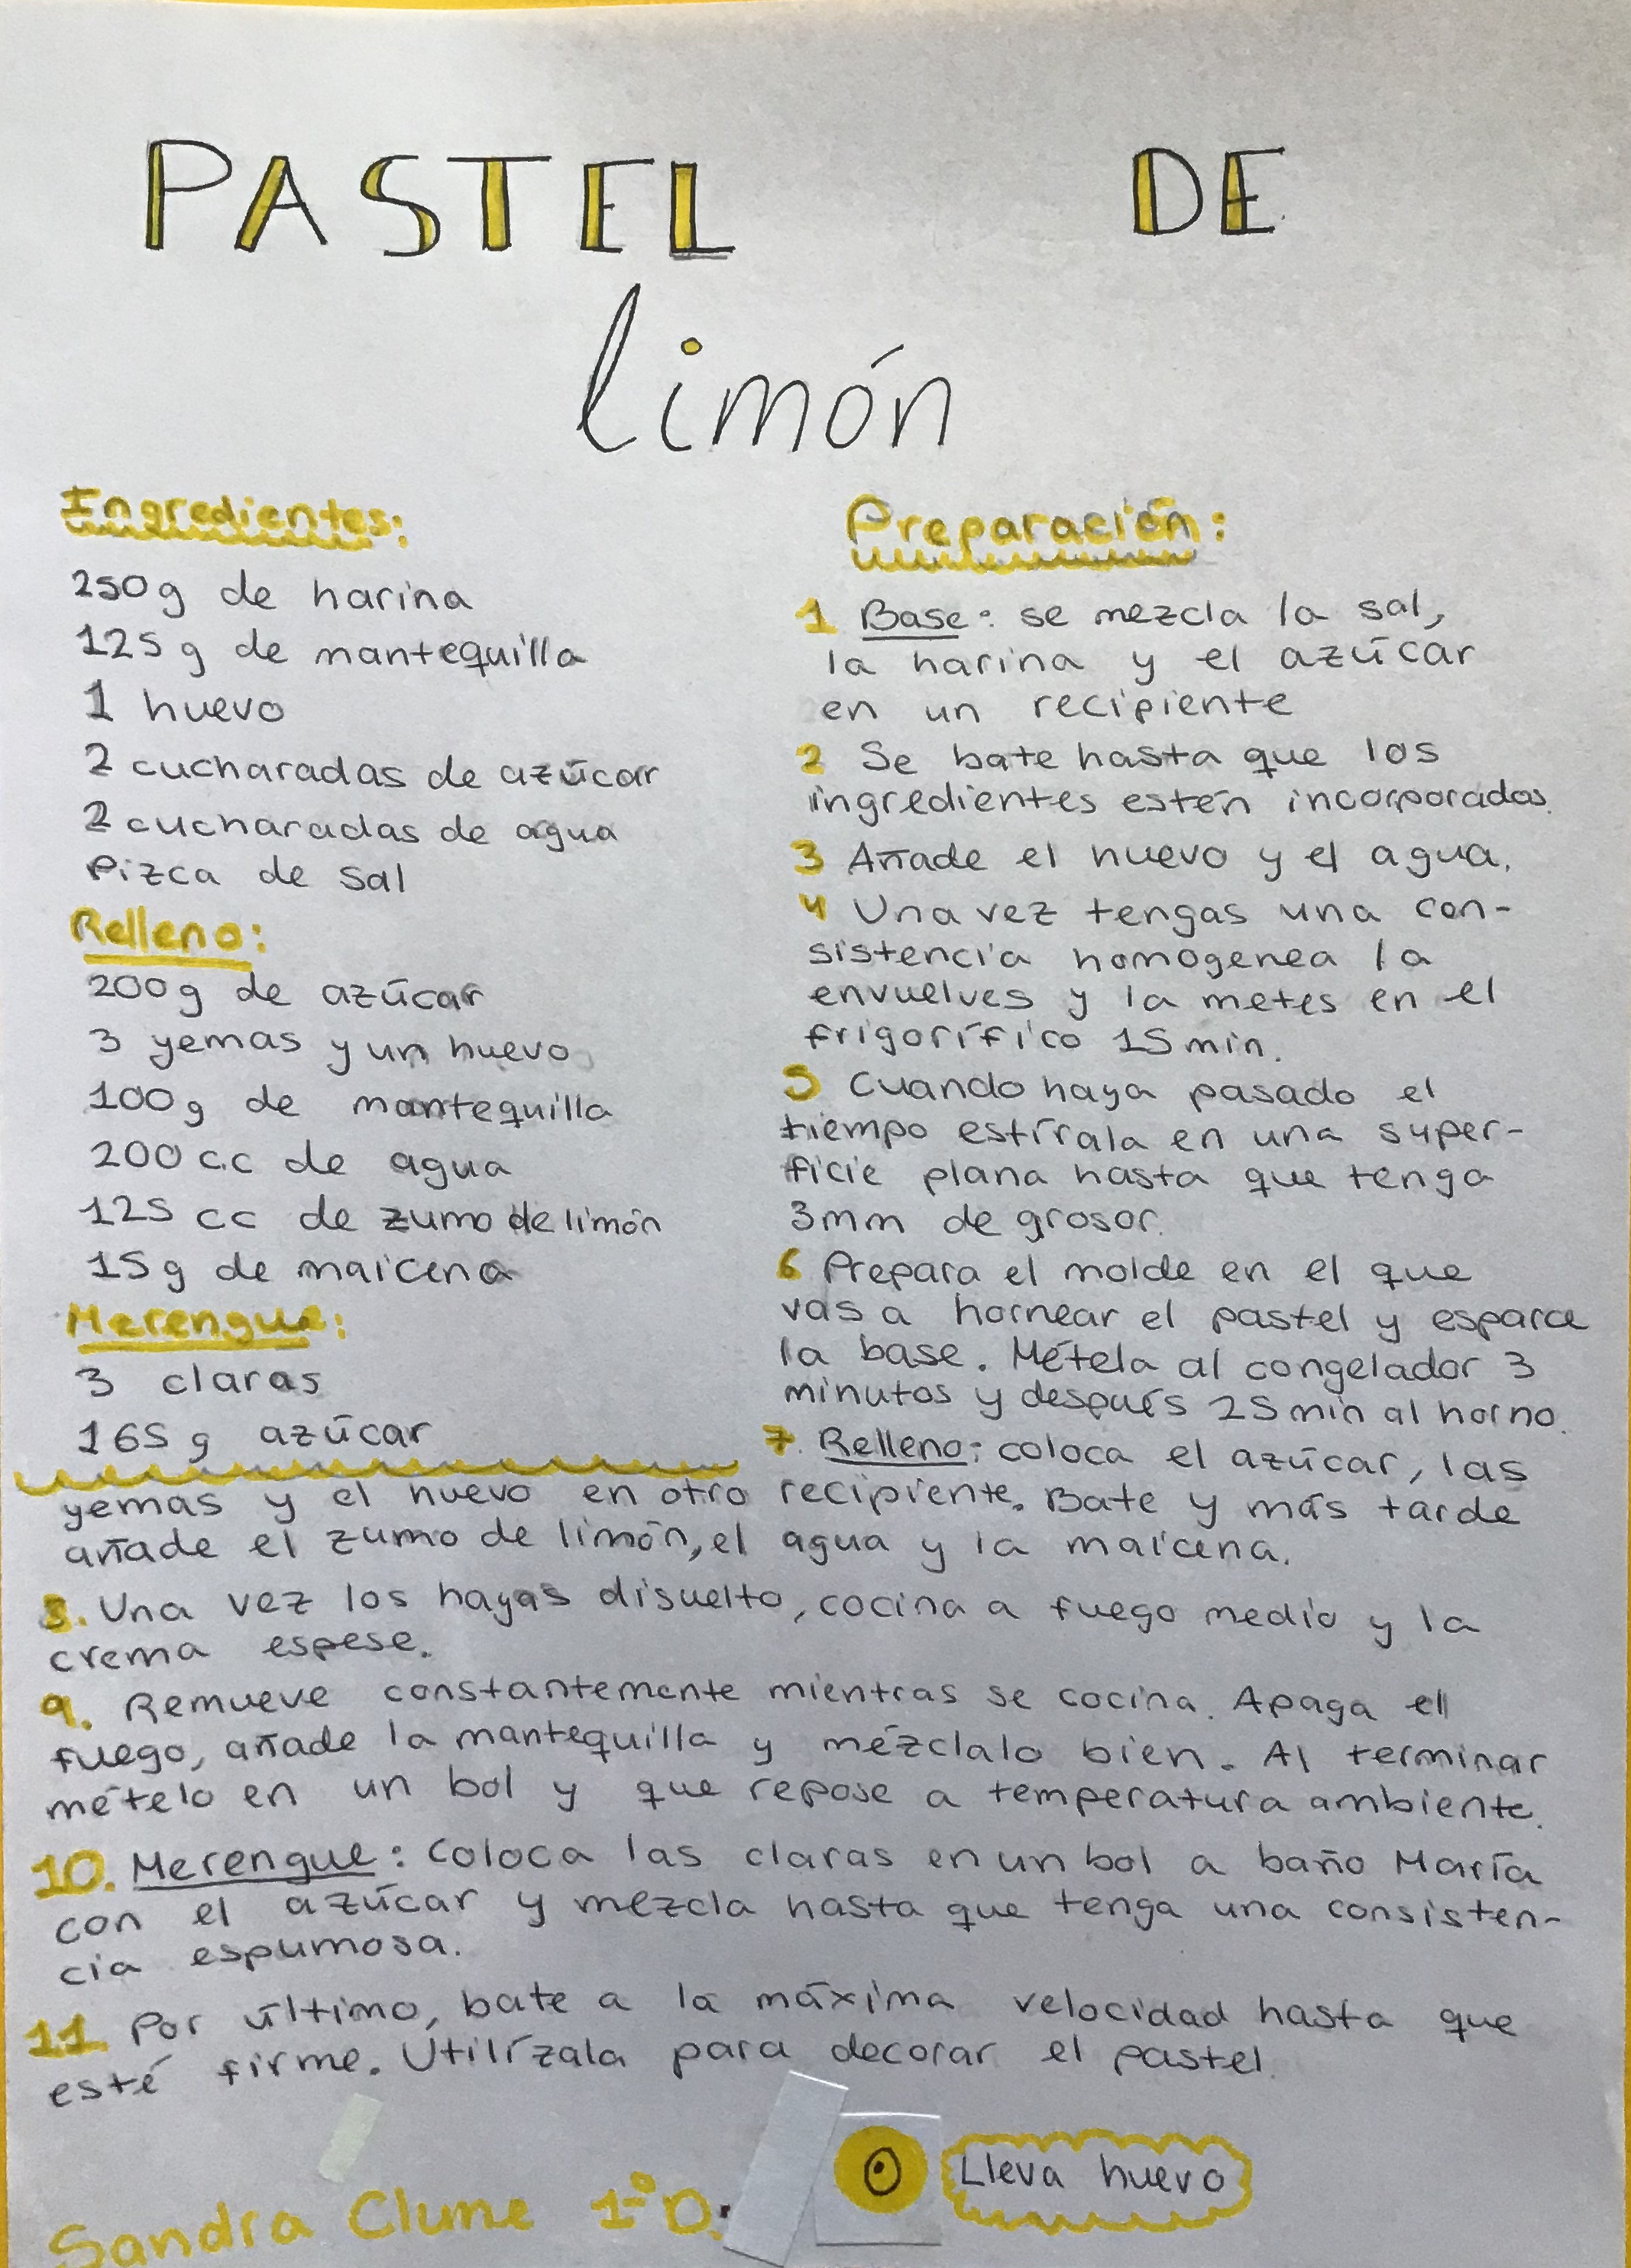 PASTEL DE
limón
Ingredientes:
250g de harina
125 g de mantequilla
1 huevo
2 cucharadas de azúcar
2 cucharadas de agua
Pizca de sal
Relleno:
200g de azúcar
3 yemas y un huevo
100g de mantequilla
200 c.c de agua
125 cc de zumo de limón
15g de maicena
Merengue:
3 claras
165 g azúcar
Preparación:
1 Base: se mezcla la sal,
la harina y el azúcar
en un recipiente
2 Se bate hasta que los
ingredientes estén incorporados.
3 Añade el huevo y el agua.
4 Una vez tengas una con-
sistencia homogenea la
envuelves y la metes en el
frigorífico 15 min.
5 Cuando haya pasado el
tiempo estírala en una super-
ficie plana hasta que tenga
3mm de grosor.
6 Prepara el molde en el que
vas a hornear el pastel y esparce
la base. Métela al congelador 3
minutos y después 25 min al horno.
7. Relleno: coloca el azúcar, las
yemas y el huevo en otro recipiente. Bate y más tarde
añade el zumo de limón, el agua y la maicena.
8. Una vez los hayas disuelto, cocina a fuego medio y la
crema espese.
9. Remueve constantemente mientras se cocina. Apaga el
fuego, añade la mantequilla y mézclalo bien. Al terminar
mételo en un bol y que repose a temperatura ambiente.
10. Merengue: Coloca las claras en un bol a baño María
con el azúcar y mezcla hasta que tenga una consisten-
cia espumosa.
11 Por último, bate a la máxima velocidad hasta que
esté firme. Utilízala para decorar el pastel.
Lleva huevo
Sandra Clume 1ºD: